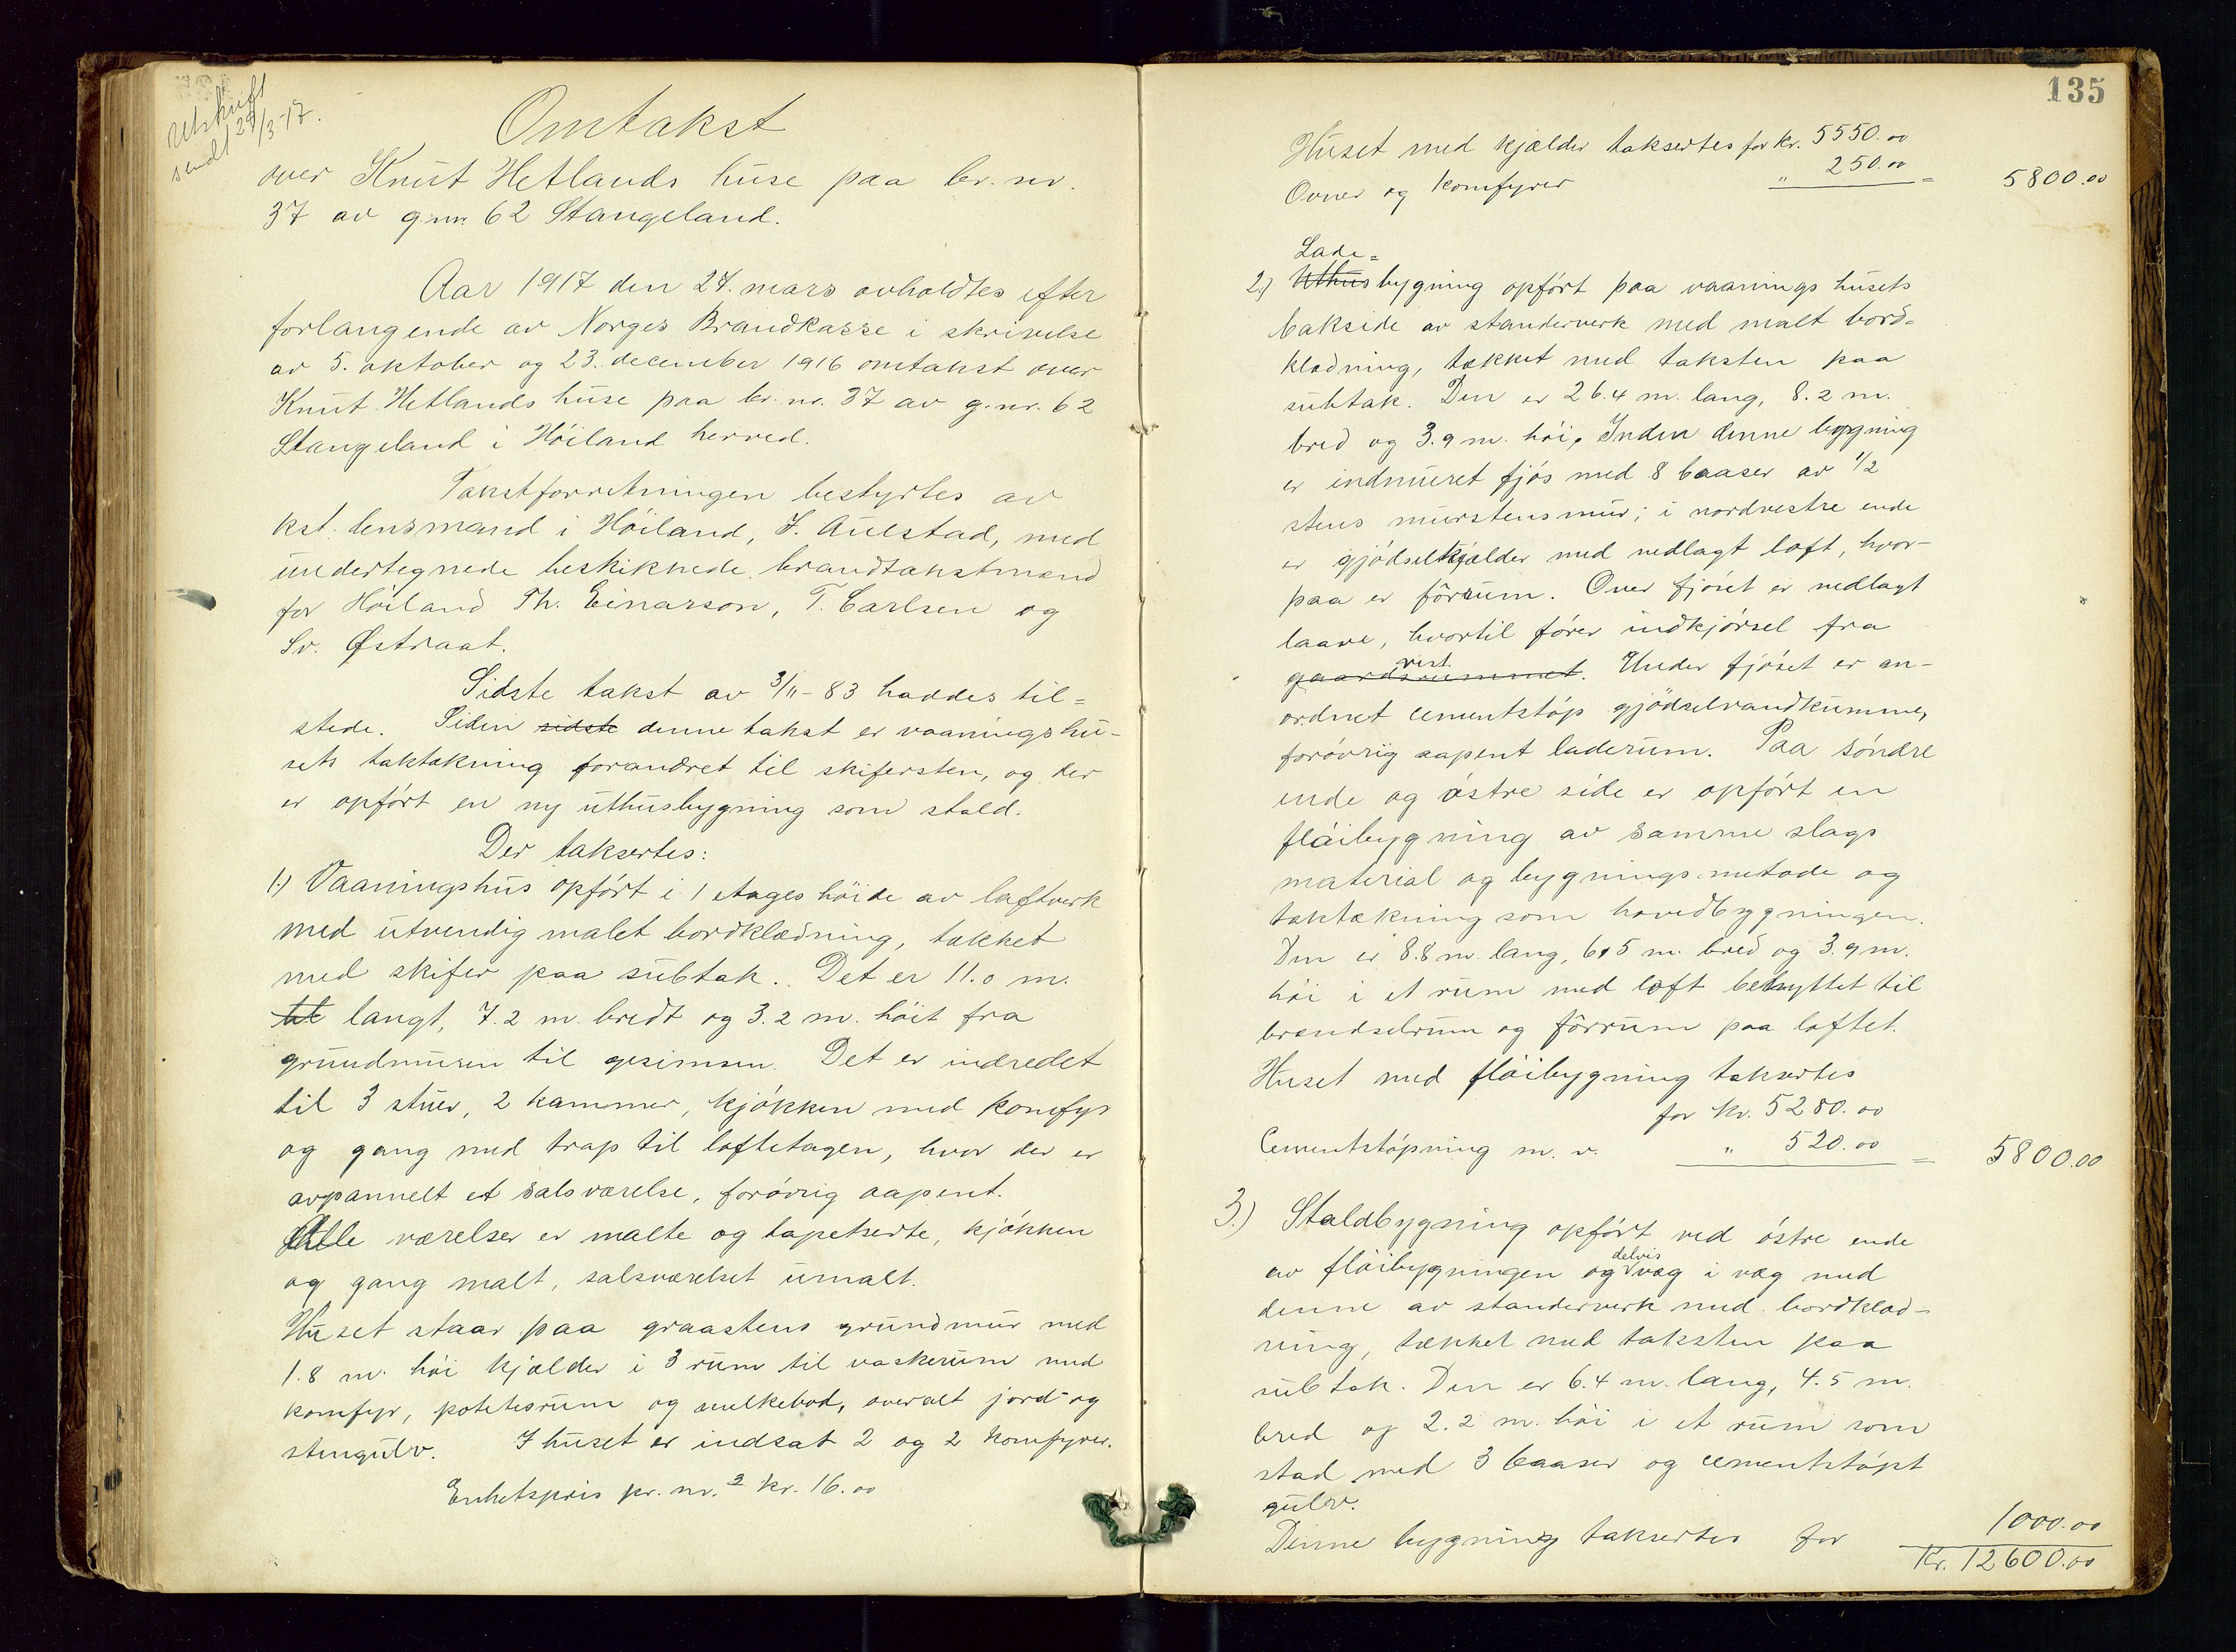 Utskrift
sendt 29/3-17.
Omtakst
over Knut Hetlands huse paa br. nr.
37 av g.nr. 62 Stangeland.
Aar 1917 den 27. mars avholdtes efter
forlangende av Norges Brandkasse i skrivelse
av 5. oktober og 23. december 1916 omtakst over
Knut Hetlands huse paa br. nr. 37 av g. nr. 62
Stangeland i Høiland herred.
Takstforretningen bestyrtes av
kst. lensmand i Høiland, J. Aulstad, med
undertegnede beskikkede brandtakstmænd
for Høiland Th. Einarson, T. Carlsen og
Sv. Østraat.
Sidste takst av 3/11-83 haddes til=
stede. Siden sidste denne takst er vaaningshu-
sets taktækning forandret til skifersten, og der
er opført en ny uthusbygning som stald.
Der taksertes:
1.) Vaaningshus opført i 1 etages høide av laftverk
med utvendig malet bordklædning, tækket
med skifer paa subtak. Det er 11.0 m.
langt, 7.2 m. bredt og 3.2 m. høit fra
grundmuren til gesimsen. Det er indredet
til 3 stuer, 2 kammer, kjøkken med komfyr
og gang med trap til loftetagen, hvor der er
avpannelt et salsværelse, forøvrig aapent.
Alle værelser er malte og tapetserte, kjøkken
og gang malt, salsværelset umalt.
Huset staar paa graastens grundmur med
1.8 m. høi kjælder i 3 rum til vaskerum med
komfyr, potetesrum og melkebod, overalt jord- og
stengulv. I huset er indsat 2 og 2 komfyrer.
Enhetspris pr. m.² kr. 16.00
135
Huset med kjælder taksertes for kr. 5550.00
Ovner og komfyrer " 250.00 = 5800.00
Lade=
2.) Uthusbygning opført paa vaaningshusets
bakside av standerverk med malt bord=
klædning, tækket med taksten paa
subtak. Den er 26.4 m. lang, 8.2 m.
bred og 3.9 m. høi. Inden denne bygning
er indmuret fjøs med 8 baaser av 1/2
stens murstensmur; i nordvestre ende
er gjødselkjælder med nedlagt loft, hvor-
paa er fôrrum. Over fjøset er nedlagt
laave, hvortil fører indkjørsel fra
vest.
gaardsrummet. Under fjøset er an-
ordnet cementstøp gjødselvandkumme,
forøvrig aapent laderum. Paa søndre
ende og østre side er opført en
fløibygning av samme slags
material og bygningsmetode og
taktækning som hovedbygningen.
Den er 8.8 m. lang, 6.5 m. bred og 3.9 m.
høi i et rum med loft benyttet til
brændselrum og fôrrum paa loftet.
Huset med fløibygning taksertes
for kr. 5280.00
Cementstøpning m. v. " 520.00 = 5800.00
3.) Staldbygning opført ved østre ende
delvis
av fløibygningen og væg i væg med
denne av standerverk med bordklæd-
ning, tækket med taksten paa
subtak. Den er 6.4 m. lang, 4.5 m.
bred og 2.2 m. høi i et rum som
stad med 3 baaser og cementstøpt
gulv.
Denne bygning taksertes for 1000.00
Kr. 12600.00